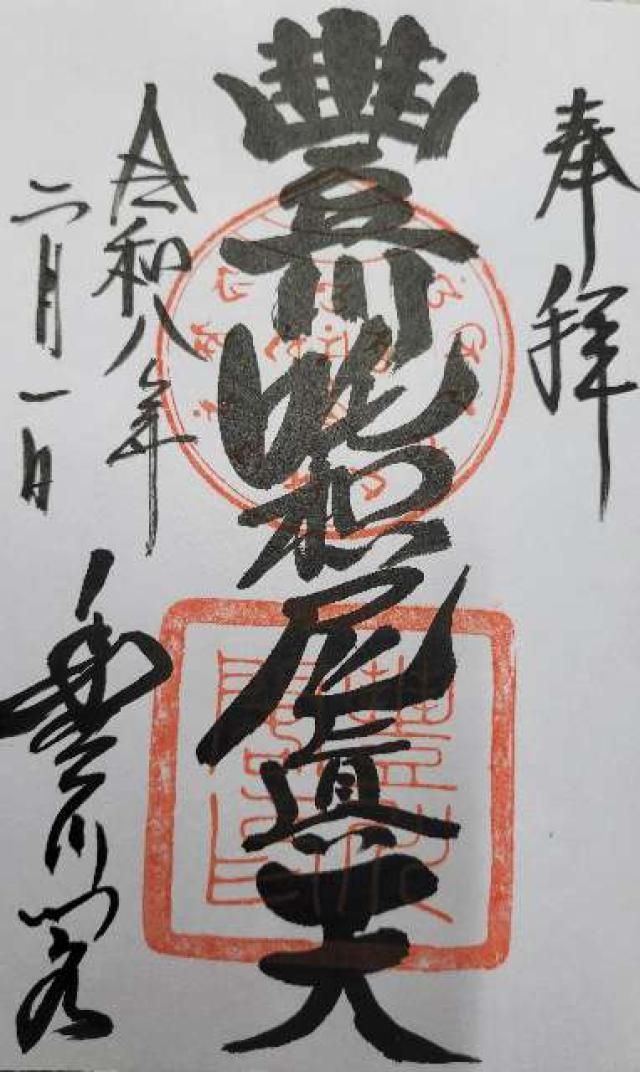 奉拝
豐川吒枳尼眞天
令和八年
二月一日
豊川閣